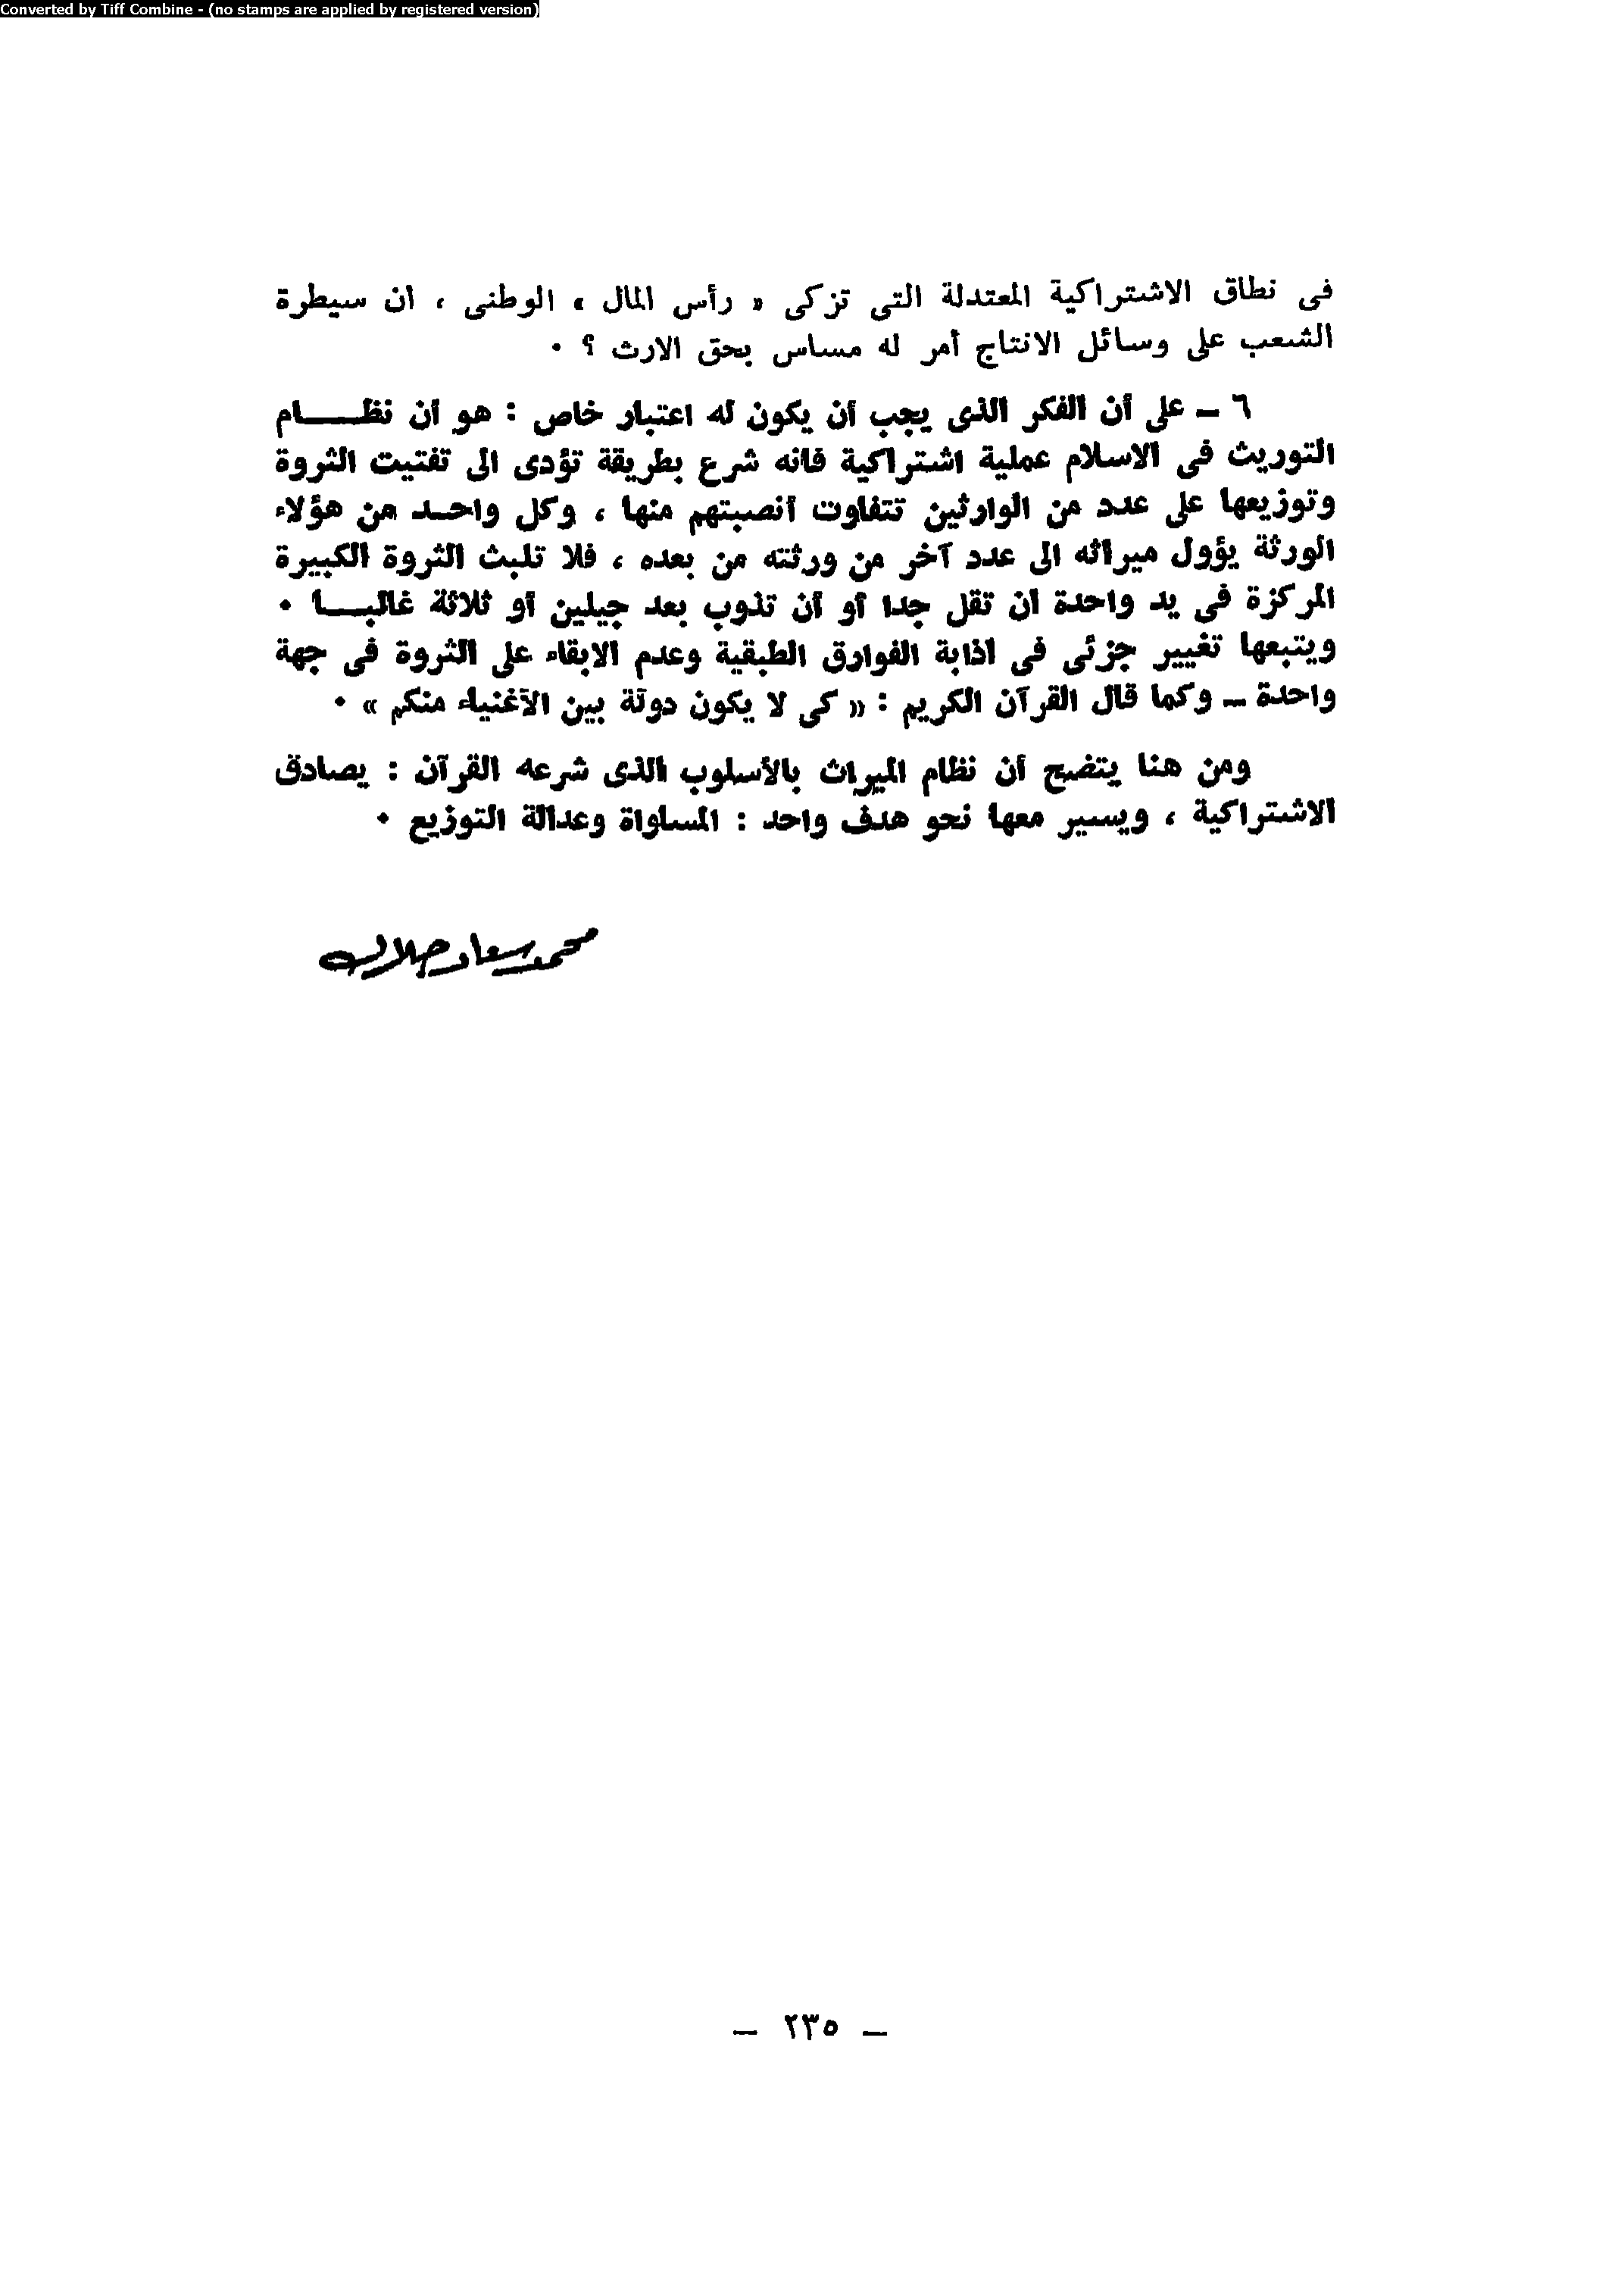 Converted by Tiff Combine - (no stamps are applied by registered version)
فى نطاق الاشتراكية المعتدلة التى تزكى « رأس المال » الوطنى ، ان سيطرة
الشعب على وسائل الانتاج أمر له مساس بحق الارث ؟ ٠
٦ – على أن الفكر الذى يجب أن يكون له اعتبار خاص : هو أن نظـــــام
التوريث فى الاسلام عملية اشتراكية فانه شرع بطريقة تؤدى الى تفتيت الثروة
وتوزيعها على عدد من الوارثين تتفاوت أنصبتهم منها ، وكل واحـد من هؤلاء
الورثة يؤول ميراثه الى عدد آخر من ورثته من بعده ، فلا تلبث الثروة الكبيرة
المركزة فى يد واحدة ان تقل جدا أو أن تذوب بعد جيلين أو ثلاثة غالبـــا ٠
ويتبعها تغيير جزئى فى اذابة الفوارق الطبقية وعدم الابقاء على الثروة فى جهة
واحدة – وكما قال القرآن الكريم : « كى لا يكون دولة بين الأغنياء منكم » ٠
ومن هنا يتضح أن نظام الميراث بالأسلوب الذى شرعه القرآن : يصادق
الاشتراكية ، ويسير معها نحو هدف واحد : المساواة وعدالة التوزيع ٠
محمد سعاد جلال
– ٢٣٥ –